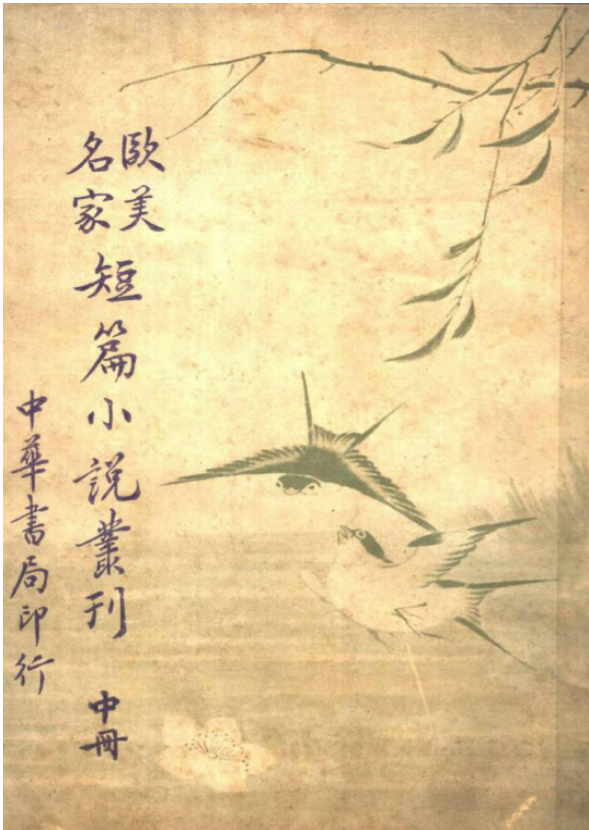 歐美
名家
短篇小說叢刊 中冊
中華書局印行